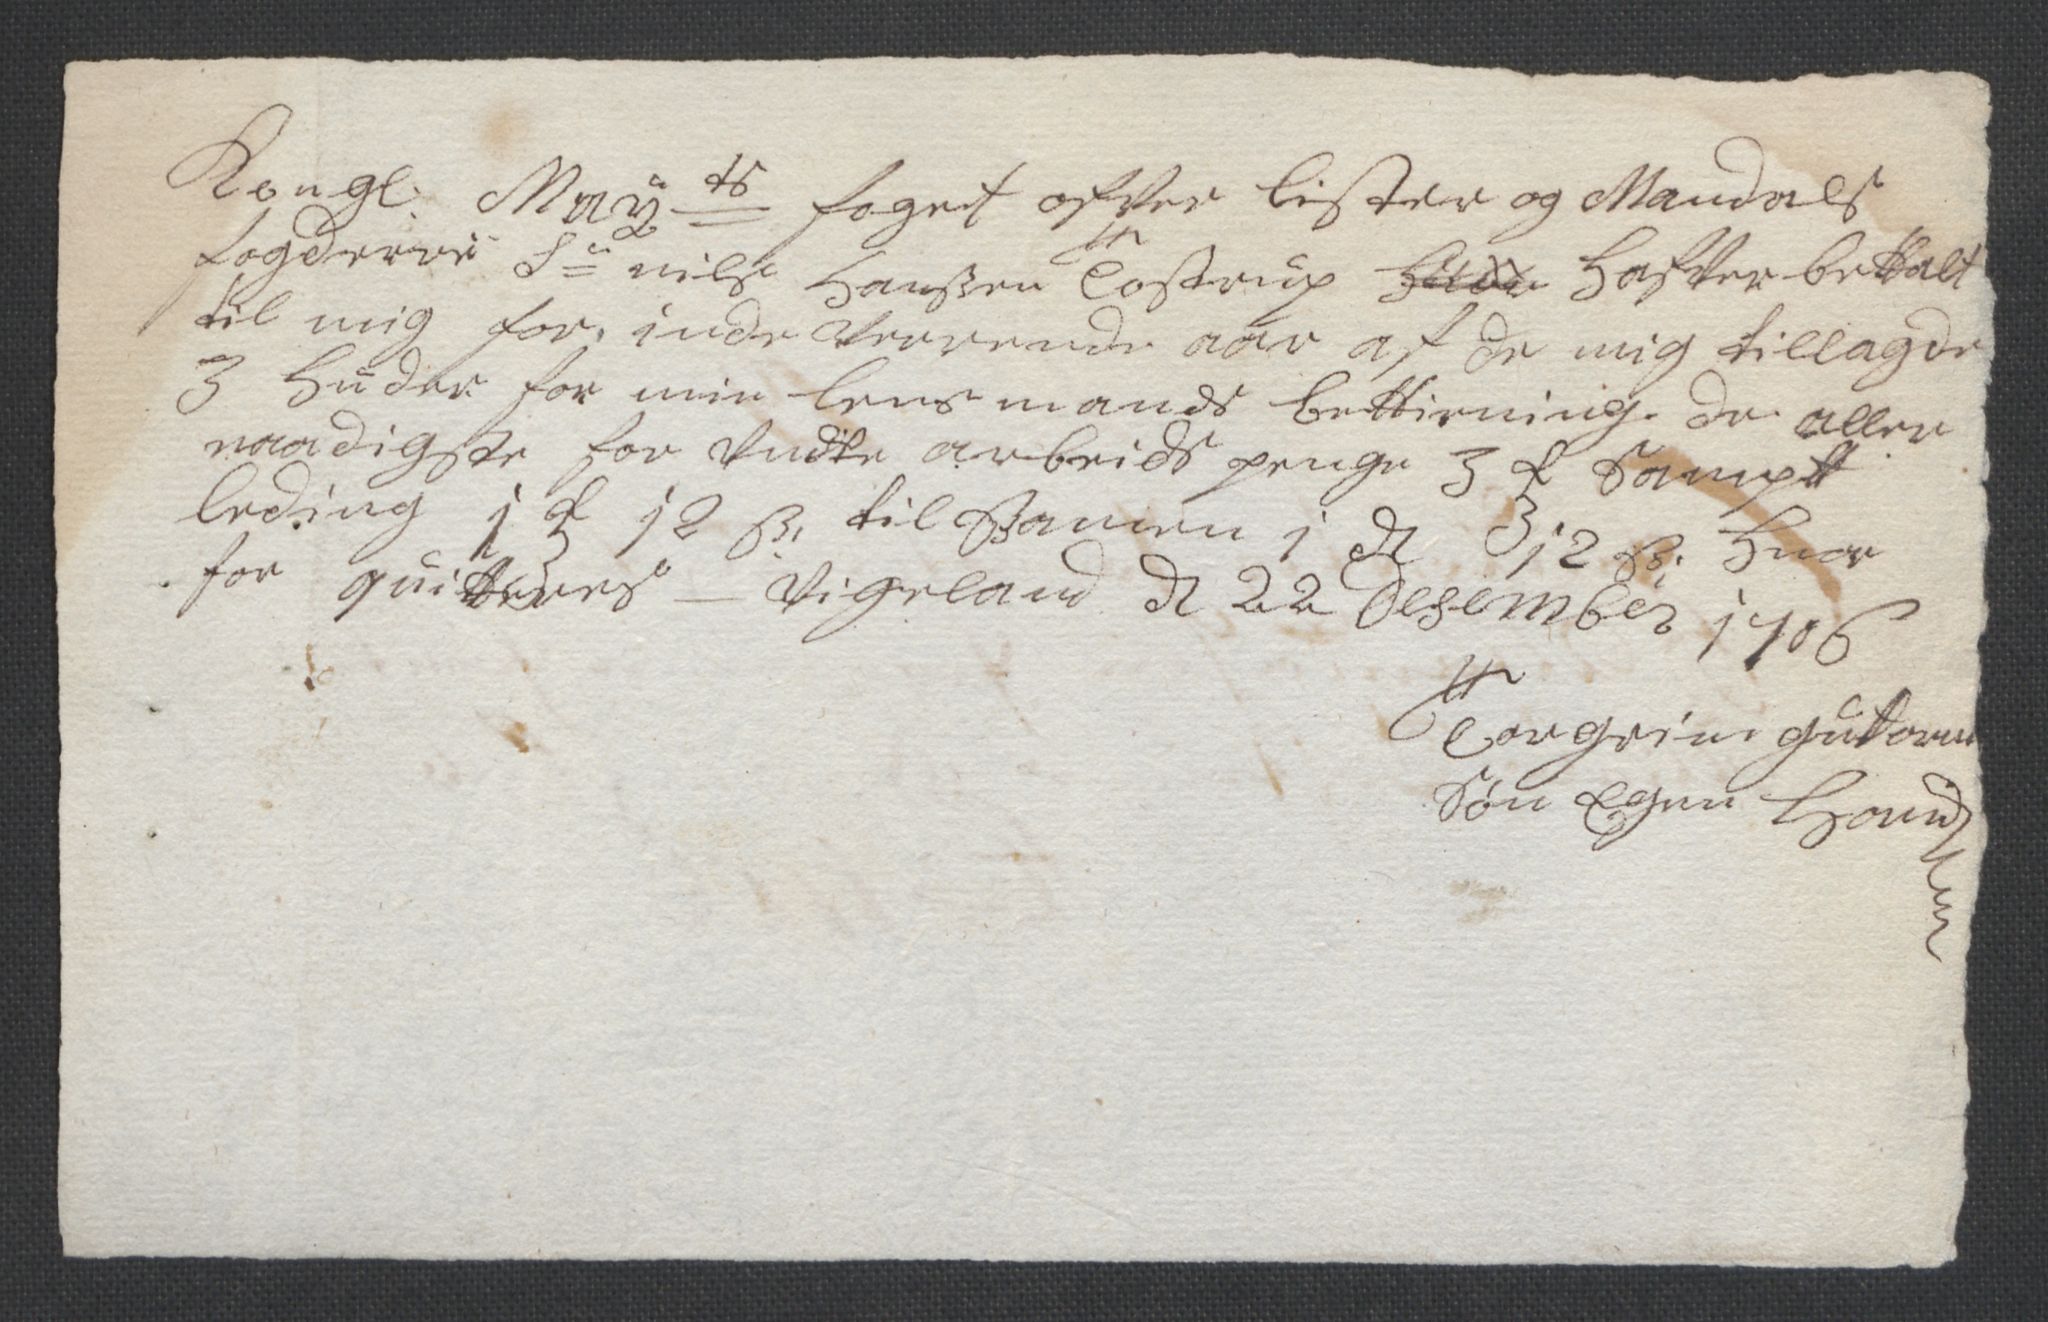 Kongl. May:ts foget ofver lister og Mandals
fogderi Sr nils Hanßen Tostrup hafver bettalt
til mig for inde verrende aar af de mig tillagde
3 huder for min lensmands bettiening. de aller
naadigste for undte arbeids penge 3 ℔ sampt
leding 1 ℔ 12 ß. til ßamen 1 dr 3 12 ß. huor
for quitteres – Vigeland d 22 Desember 1706
Torgrim guttorm
Søn Egen Haand